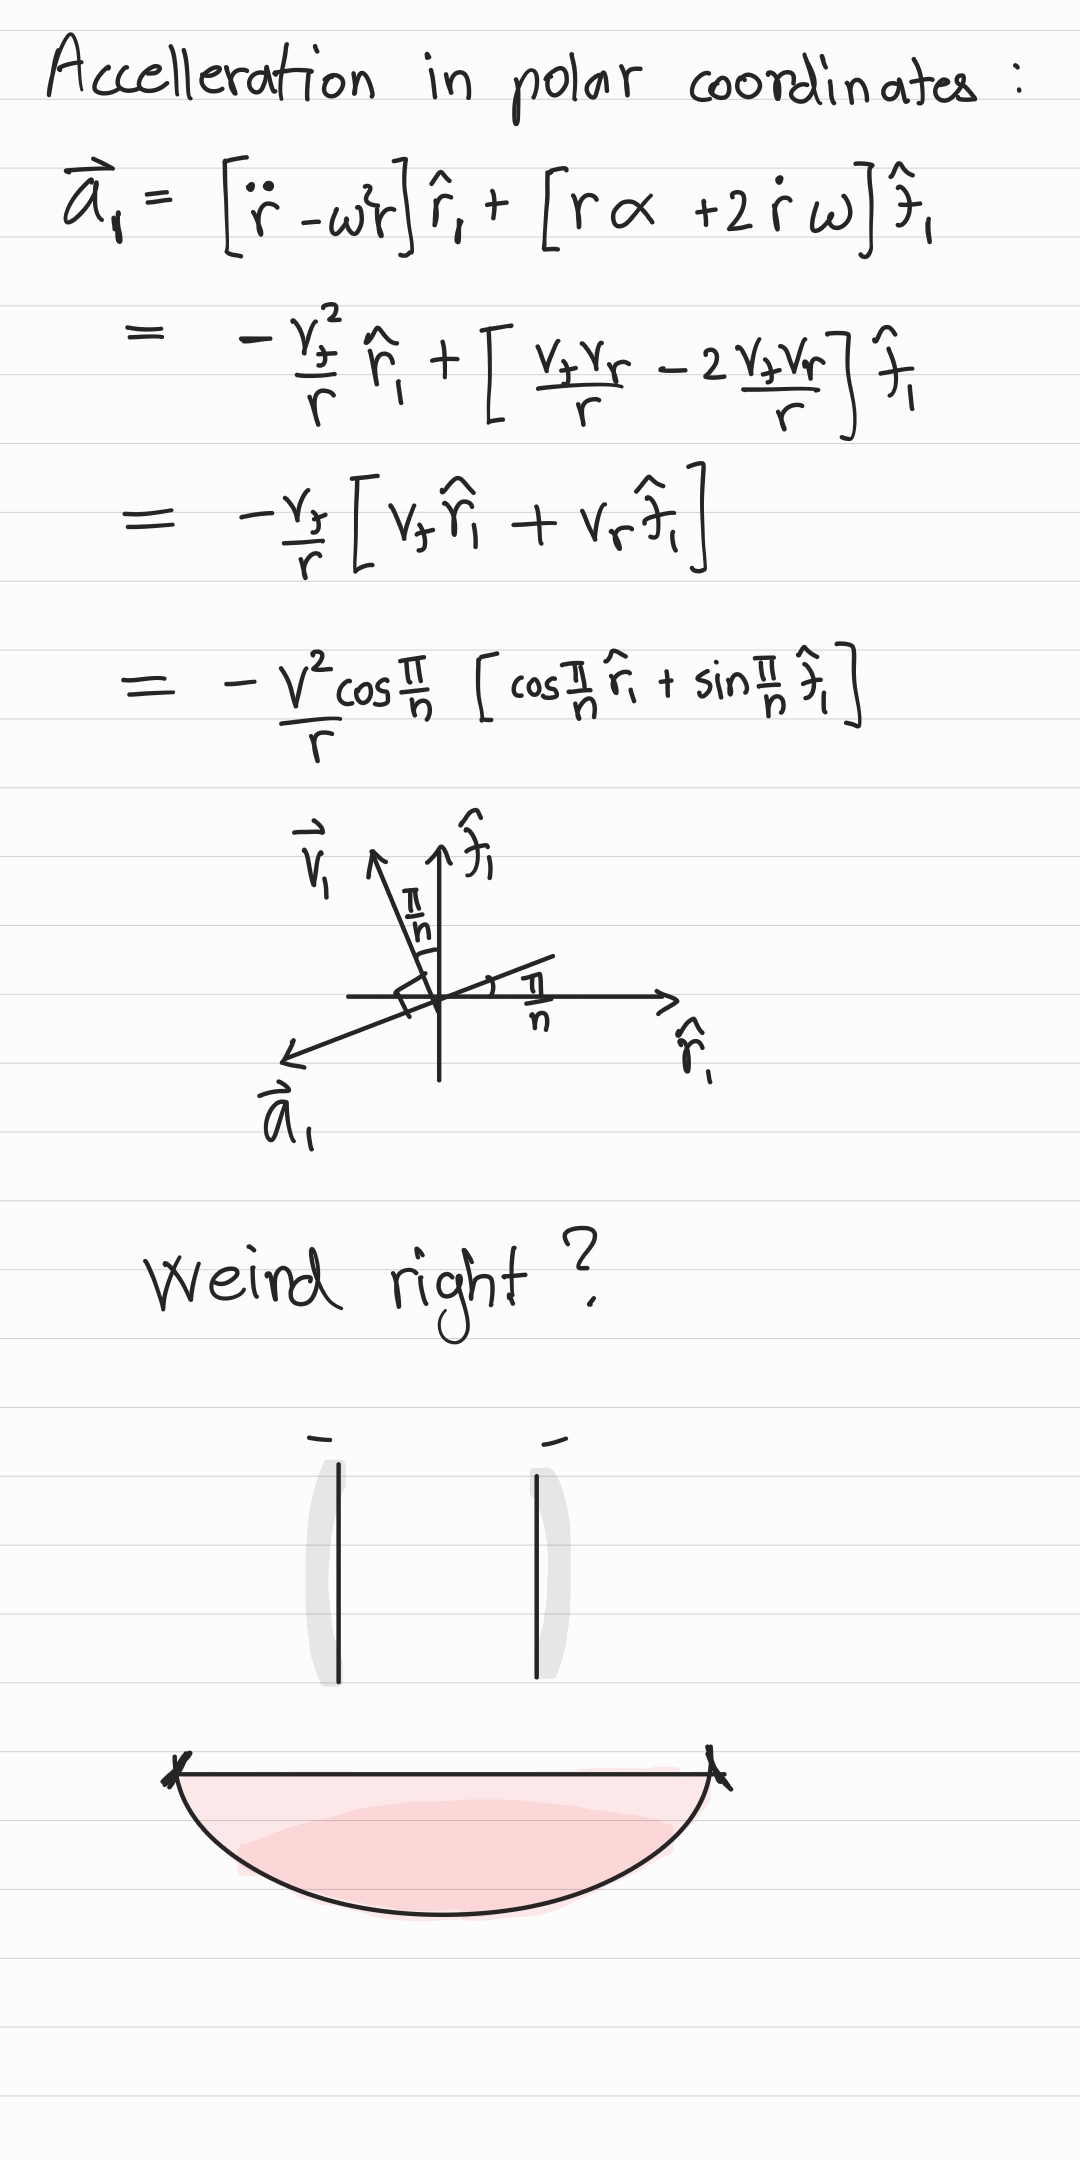 Accelleration in polar coordinates :
a⃗₁ = [r̈ - ω²r] r̂₁ + [rα + 2ṙω] t̂₁
= - v_t²/r r̂₁ + [v_t v_r/r - 2 v_t v_r/r] t̂₁
= - v_t/r [v_t r̂₁ + v_r t̂₁]
= - v²/r cos π/n [cos π/n r̂₁ + sin π/n t̂₁]
v⃗₁ t̂₁
π/n
π/n
r̂₁
a⃗₁
Weird right ?